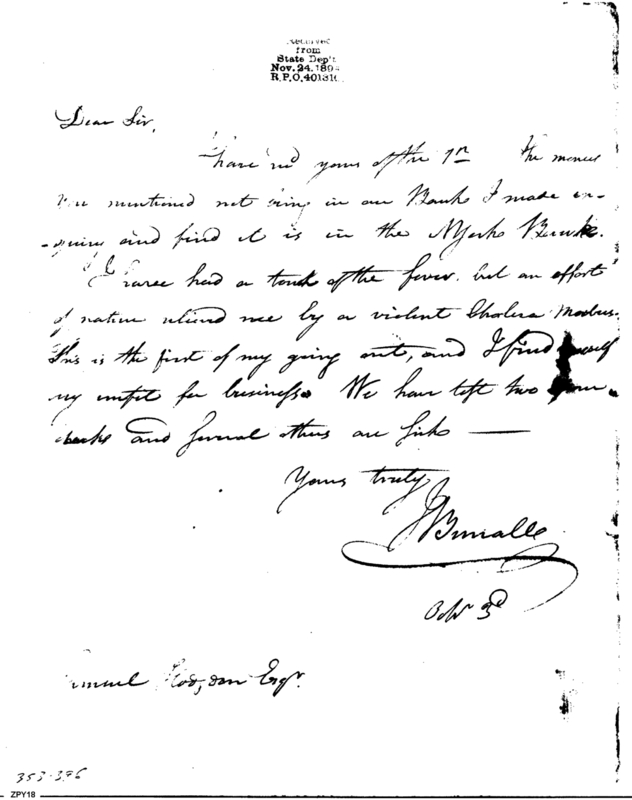 Received
from
State Dep't
Nov. 24. 189
R.P.O. 401316
Dear Sir,
I have rec'd yours of the 7th The monies
You mentioned not being in our Bank I made en-
-quiry and find it is in the NYork Bank.
I have had a touch of the fever. but an effort
of nature reliev'd me by a violent Cholera Morbus.
This is the first of my going out, and I find myself
very unfit for business. We have lost two
clerks and several others are sick —
Yours truly
Octbr 3d
Samuel Hodgdon Esqr.
353-396
ZPY18